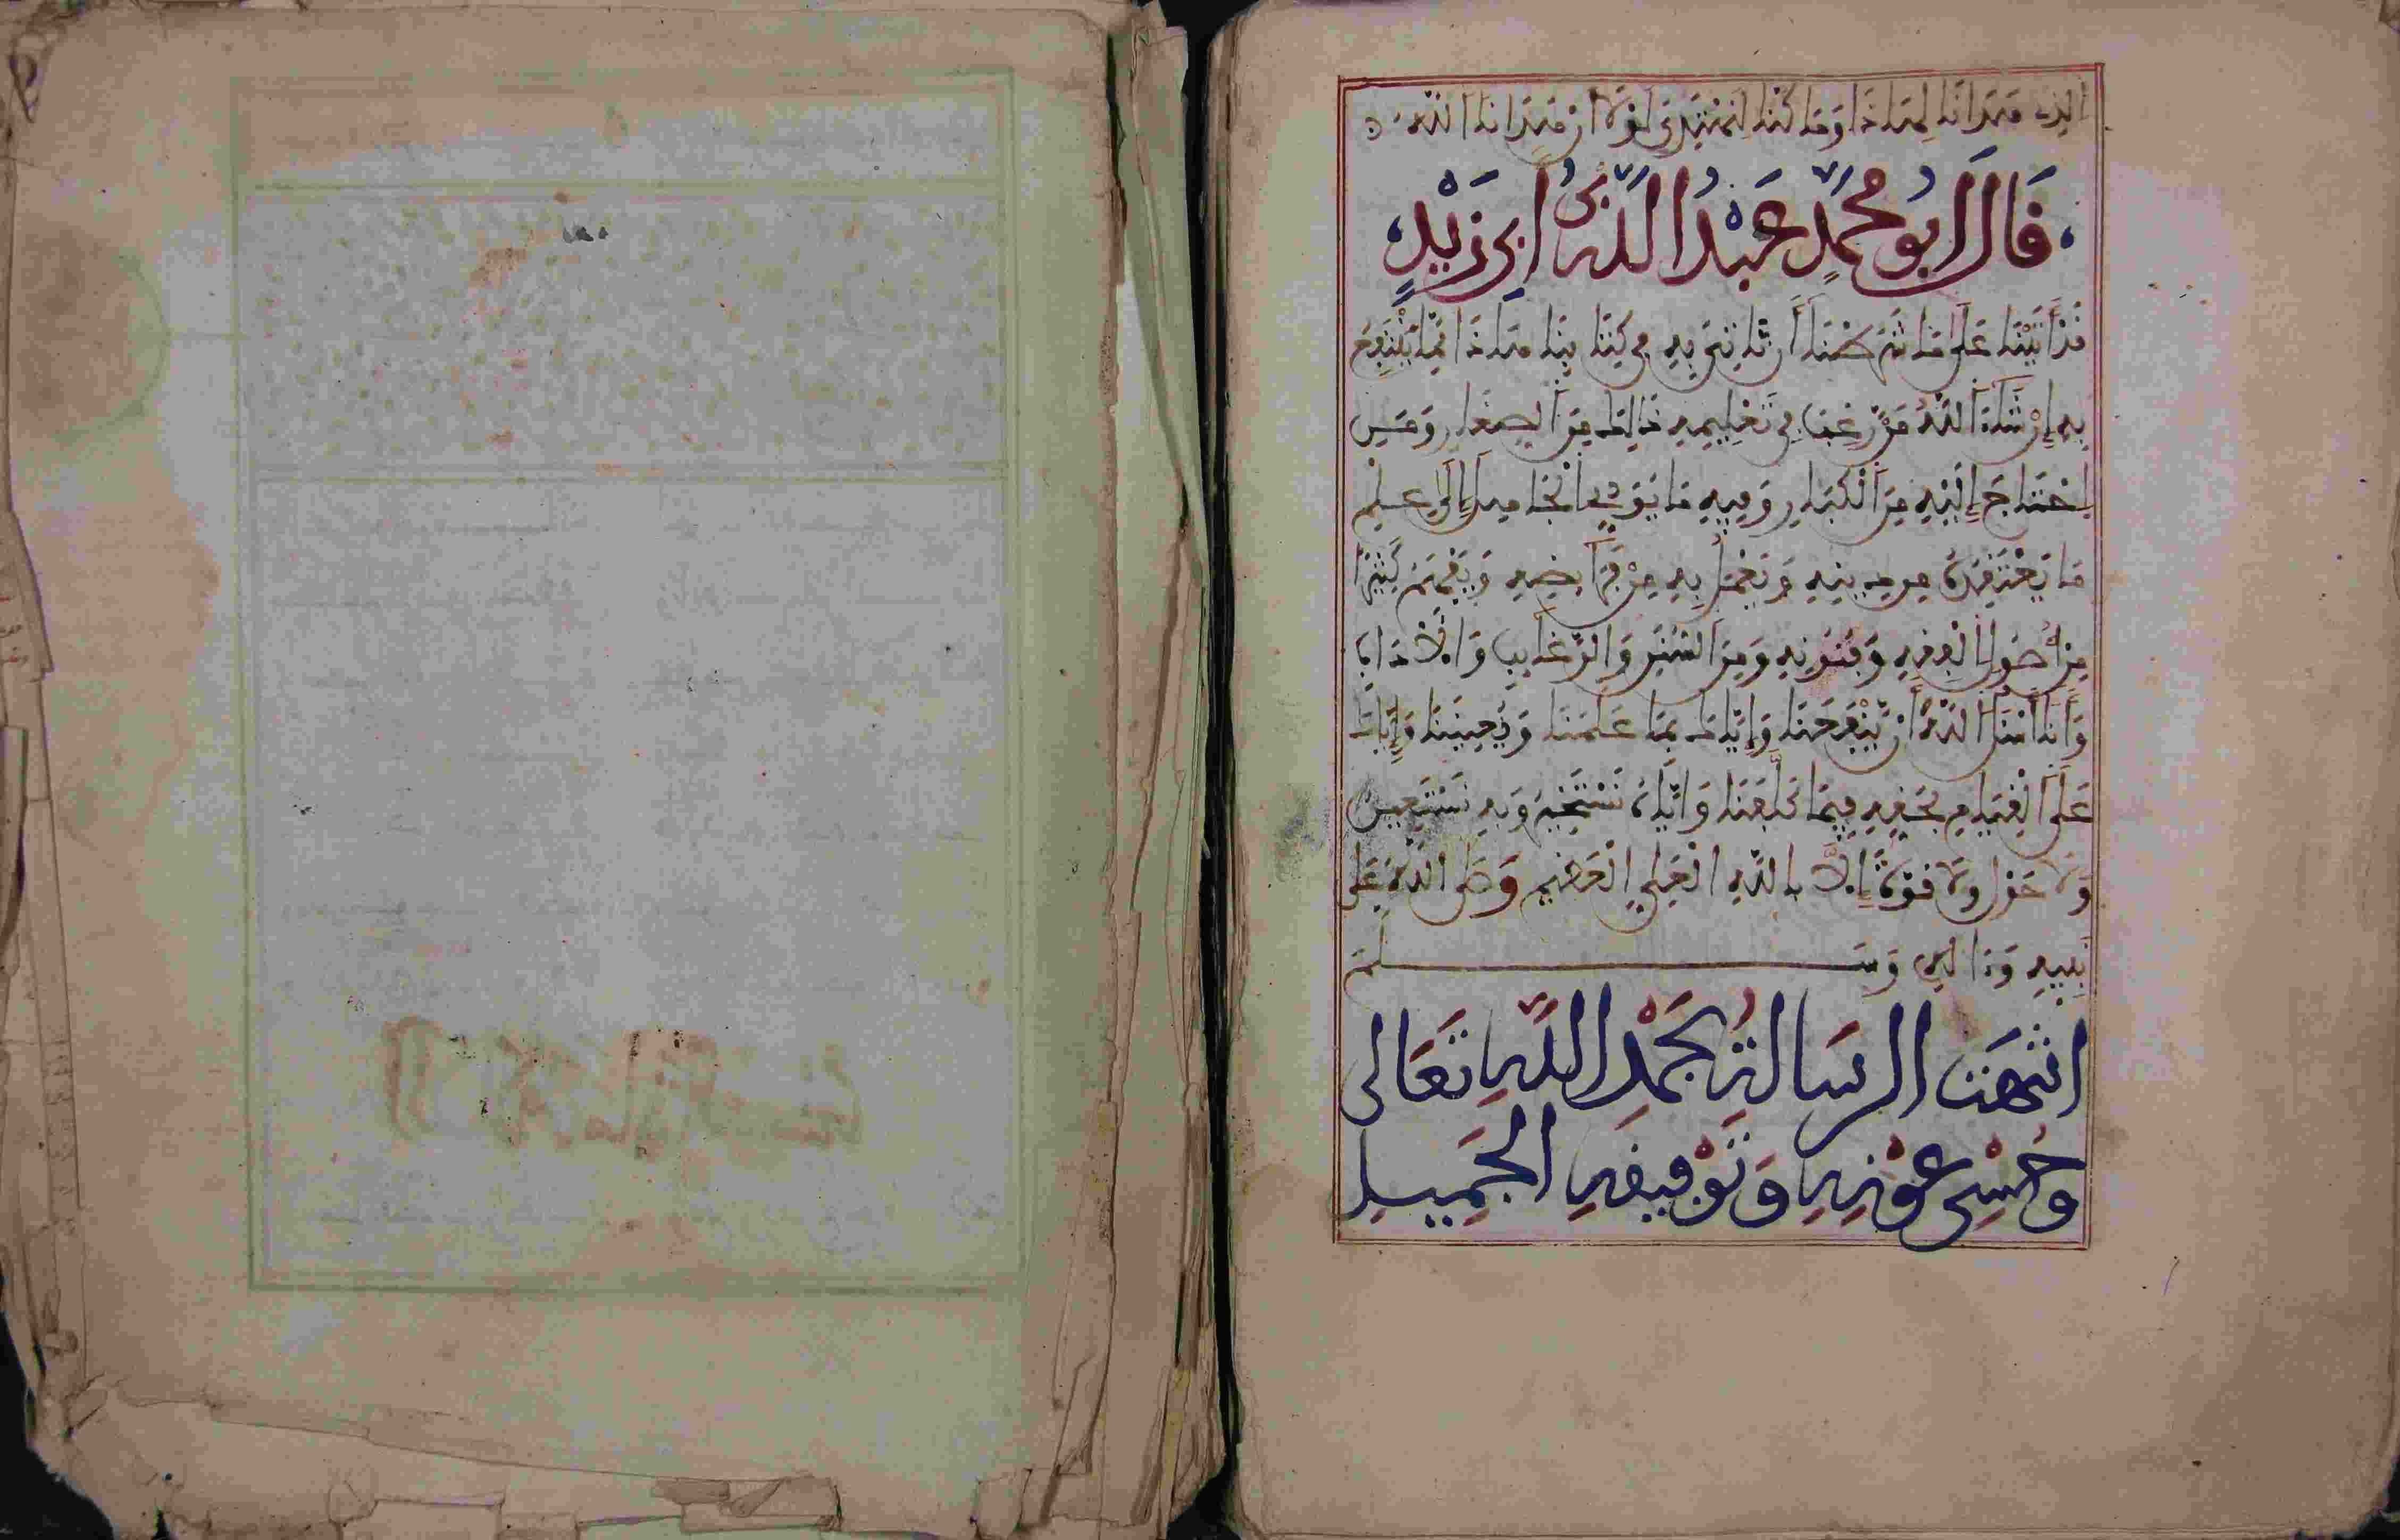 الذِي هَدَانَا لِهَاذَا وَمَا كُنَّا لِنَهْتَدِيَ لَوْلَا أَنْ هَدَانَا اللَّهُ
قَالَ أَبُو مُحَمَّدٍ عَبْدُ اللَّهِ بْنُ أَبِي زَيْدٍ
قَدْ أَتَيْنَا عَلَى مَا شَرَطْنَا أَن نَّاتِيَ بِهِ فِي كِتَابِنَا هَاذَا مِمَّا يَنْتَفِعُ
بِهِ إِن شَاءَ اللَّهُ مَن رَّغِبَ فِي تَعْلِيمِهِ ذَالِكَ مِنَ الصِّغَارِ وَمَنِ
احْتَاجَ إِلَيْهِ مِنَ الْكِبَارِ وَفِيهِ مَا يُوَدِّي الْجَاهِلَ إِلَى عِلْمِ
مَا يَعْتَقِدُهُ مِن دِينِهِ وَيَعْمَلُ بِهِ مِنْ فَرَائِضِهِ وَيَفْهَمُ كَثِيرًا
مِنْ أُصُولِ الْفِقْهِ وَفُنُونِهِ وَمِنَ السُّنَنِ وَالرَّغَائِبِ وَالْآدَابِ
وَأَنَا أَسْأَلُ اللَّهَ أَنْ يَّنْفَعَنَا وَإِيَّاكَ بِمَا عَلَّمَنَا وَيُعِينَنَا وَإِيَّاكَ
عَلَى الْقِيَامِ بِحَقِّهِ فِيمَا كَلَّفَنَا وَإِيَّاهُ نَسْتَخِيرُ وَبِهِ نَسْتَعِينُ
وَلَا حَوْلَ وَلَا قُوَّةَ إِلَّا بِاللَّهِ الْعَلِيِّ الْعَظِيمِ وَصَلَّى اللَّهُ عَلَى
نَبِيِّهِ وَءَالِهِ وَسَلَّمَ
انْتَهَت الرِّسَالَةُ بِحَمْدِ اللَّهِ تَعَالَى
وَحُسْنِ عَوْنِهِ وَتَوْفِيقِهِ الْجَمِيلِ